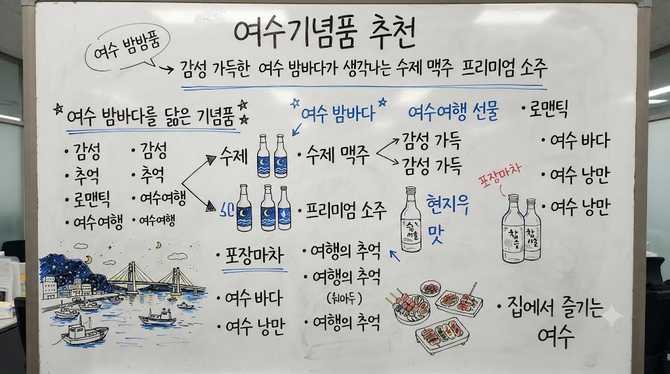 여수기념품 추천
여수 밤밤품
감성 가득한 여수 밤바다가 생각나는 수제 맥주 프리미엄 소주
여수 밤바다를 닮은 기념품
• 감성
• 추억
• 로맨틱
• 여수여행
• 감성
• 추억
• 여수여행
• 여수여행
여수 밤바다
수제
• 수제 맥주
감성 가득
감성 가득
• 프리미엄 소주
• 포장마차
• 여수 바다
• 여수 낭만
• 여행의 추억
• 여행의 추억
• 여행의 추억
여수여행 선물
현지우
맛
• 로맨틱
• 여수 바다
• 여수 낭만
• 여수 낭만
포장마차
• 집에서 즐기는
여수